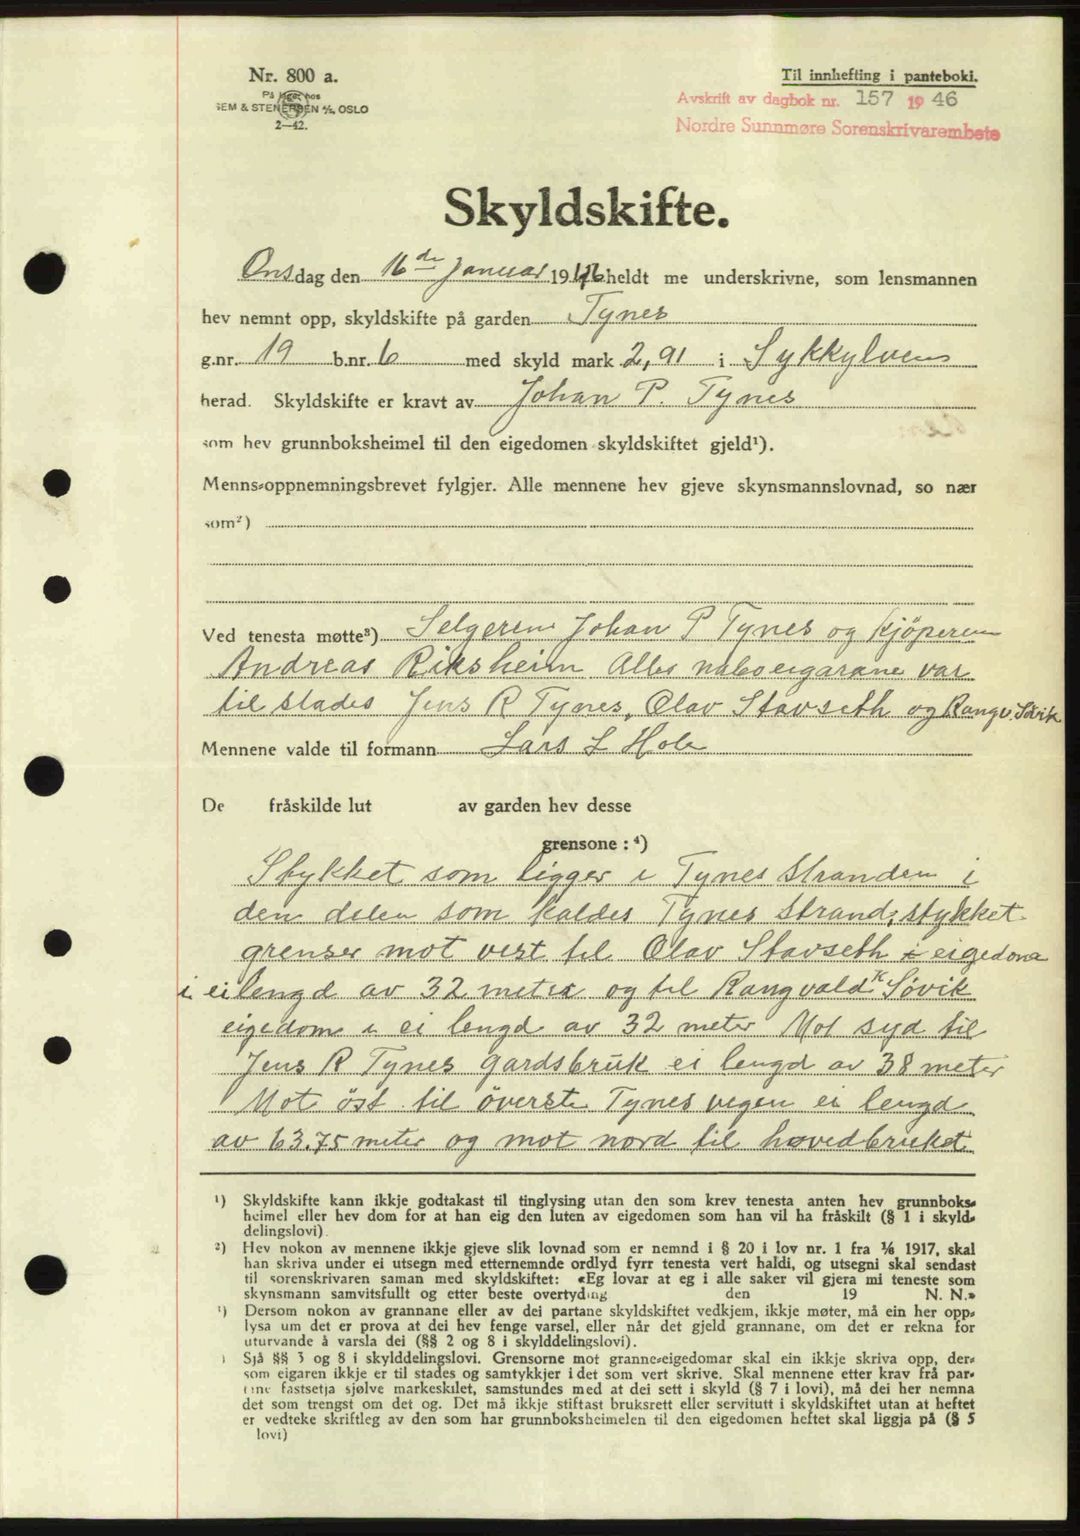 Nr. 800 a.
På lager hos
SEM & STENERSEN A/S, OSLO
2—42.
Til innhefting i panteboki.
Avskrift av dagbok nr. 157 1946
Nordre Sunnmøre Sorenskrivarembete
Skyldskifte.
Onsdag den 16de Januar 1946 heldt me underskrivne, som lensmannen
hev nemnt opp, skyldskifte på garden Tynes
g.nr. 19 b.nr. 6 med skyld mark 2,91 i Sykkylvens
herad. Skyldskifte er kravt av Johan P. Tynes
som hev grunnboksheimel til den eigedomen skyldskiftet gjeld¹).
Menns-oppnemningsbrevet fylgjer. Alle mennene hev gjeve skynsmannslovnad, so nær
som²)
Ved tenesta møtte³) Selgeren Johan P Tynes og kjöperen
Andreas Riksheim Alles naboeigarane var
til stades Jens R Tynes, Olav Stavseth og Rangv. Sövik
Mennene valde til formann Lars L Hole
De fråskilde lut av garden hev desse
grensone :⁴)
Stykket som ligger i Tynes Stranden i
den delen som kaldes Tynes Strand; stykket
grenser mot vest til Olav Stavseth eigedom
i ei lengd av 32 meter og til Rangvald K Sövik
eigedom i ei lengd av 32 meter Mot syd til
Jens R Tynes gardsbruk ei lengd av 38 meter
Mot öst til överste Tynes vegen ei lengd
av 63.75 meter og mot nord til hovedbruket
¹) Skyldskifte kann ikkje godtakast til tinglysing utan den som krev tenesta anten hev grunnboks-
heimel eller hev dom for at han eig den luten av eigedomen som han vil ha fråskilt (§ 1 i skyld-
delingslovi).
²) Hev nokon av mennene ikkje gjeve slik lovnad som er nemnd i § 20 i lov nr. 1 fra 1/6 1917, skal
han skriva under ei utsegn med etternemnde ordlyd fyrr tenesta vert haldi, og utsegni skal sendast
til sorenskrivaren saman med skyldskiftet: «Eg lovar at eg i alle saker vil gjera mi teneste som
skynsmann samvitsfullt og etter beste overtyding den 19 N. N.»
³) Dersom nokon av grannane eller av dei partane skyldskiftet vedkjem, ikkje møter, må ein her opp-
lysa um det er prova at dei hev fenge varsel, eller når det gjeld grannane, om det er rekna for
uturvande å varsla dei (§§ 2 og 8 i skylddelingslovi).
⁴) Sjå §§ 3 og 8 i skylddelingslovi. Grensorne mot granne-eigedomar skal ein ikkje skriva opp, der-
som eigaren ikkje er til stades og samtykkjer i det som vert skrive. Skal mennene etter krav frå par-
tane fastsetja sjølve markeskilet, samstundes med at dei sett i skyld (§ 7 i lovi), må dei her nemna
det som trengst om det og. Det må ikkje stiftast bruksrett eller servitutt i skyldskiftet utan at heftet
er vedteke skriftleg av den som har grunnboksheimelen til den eigedomen heftet skal liggja på (§ 5
lovi)